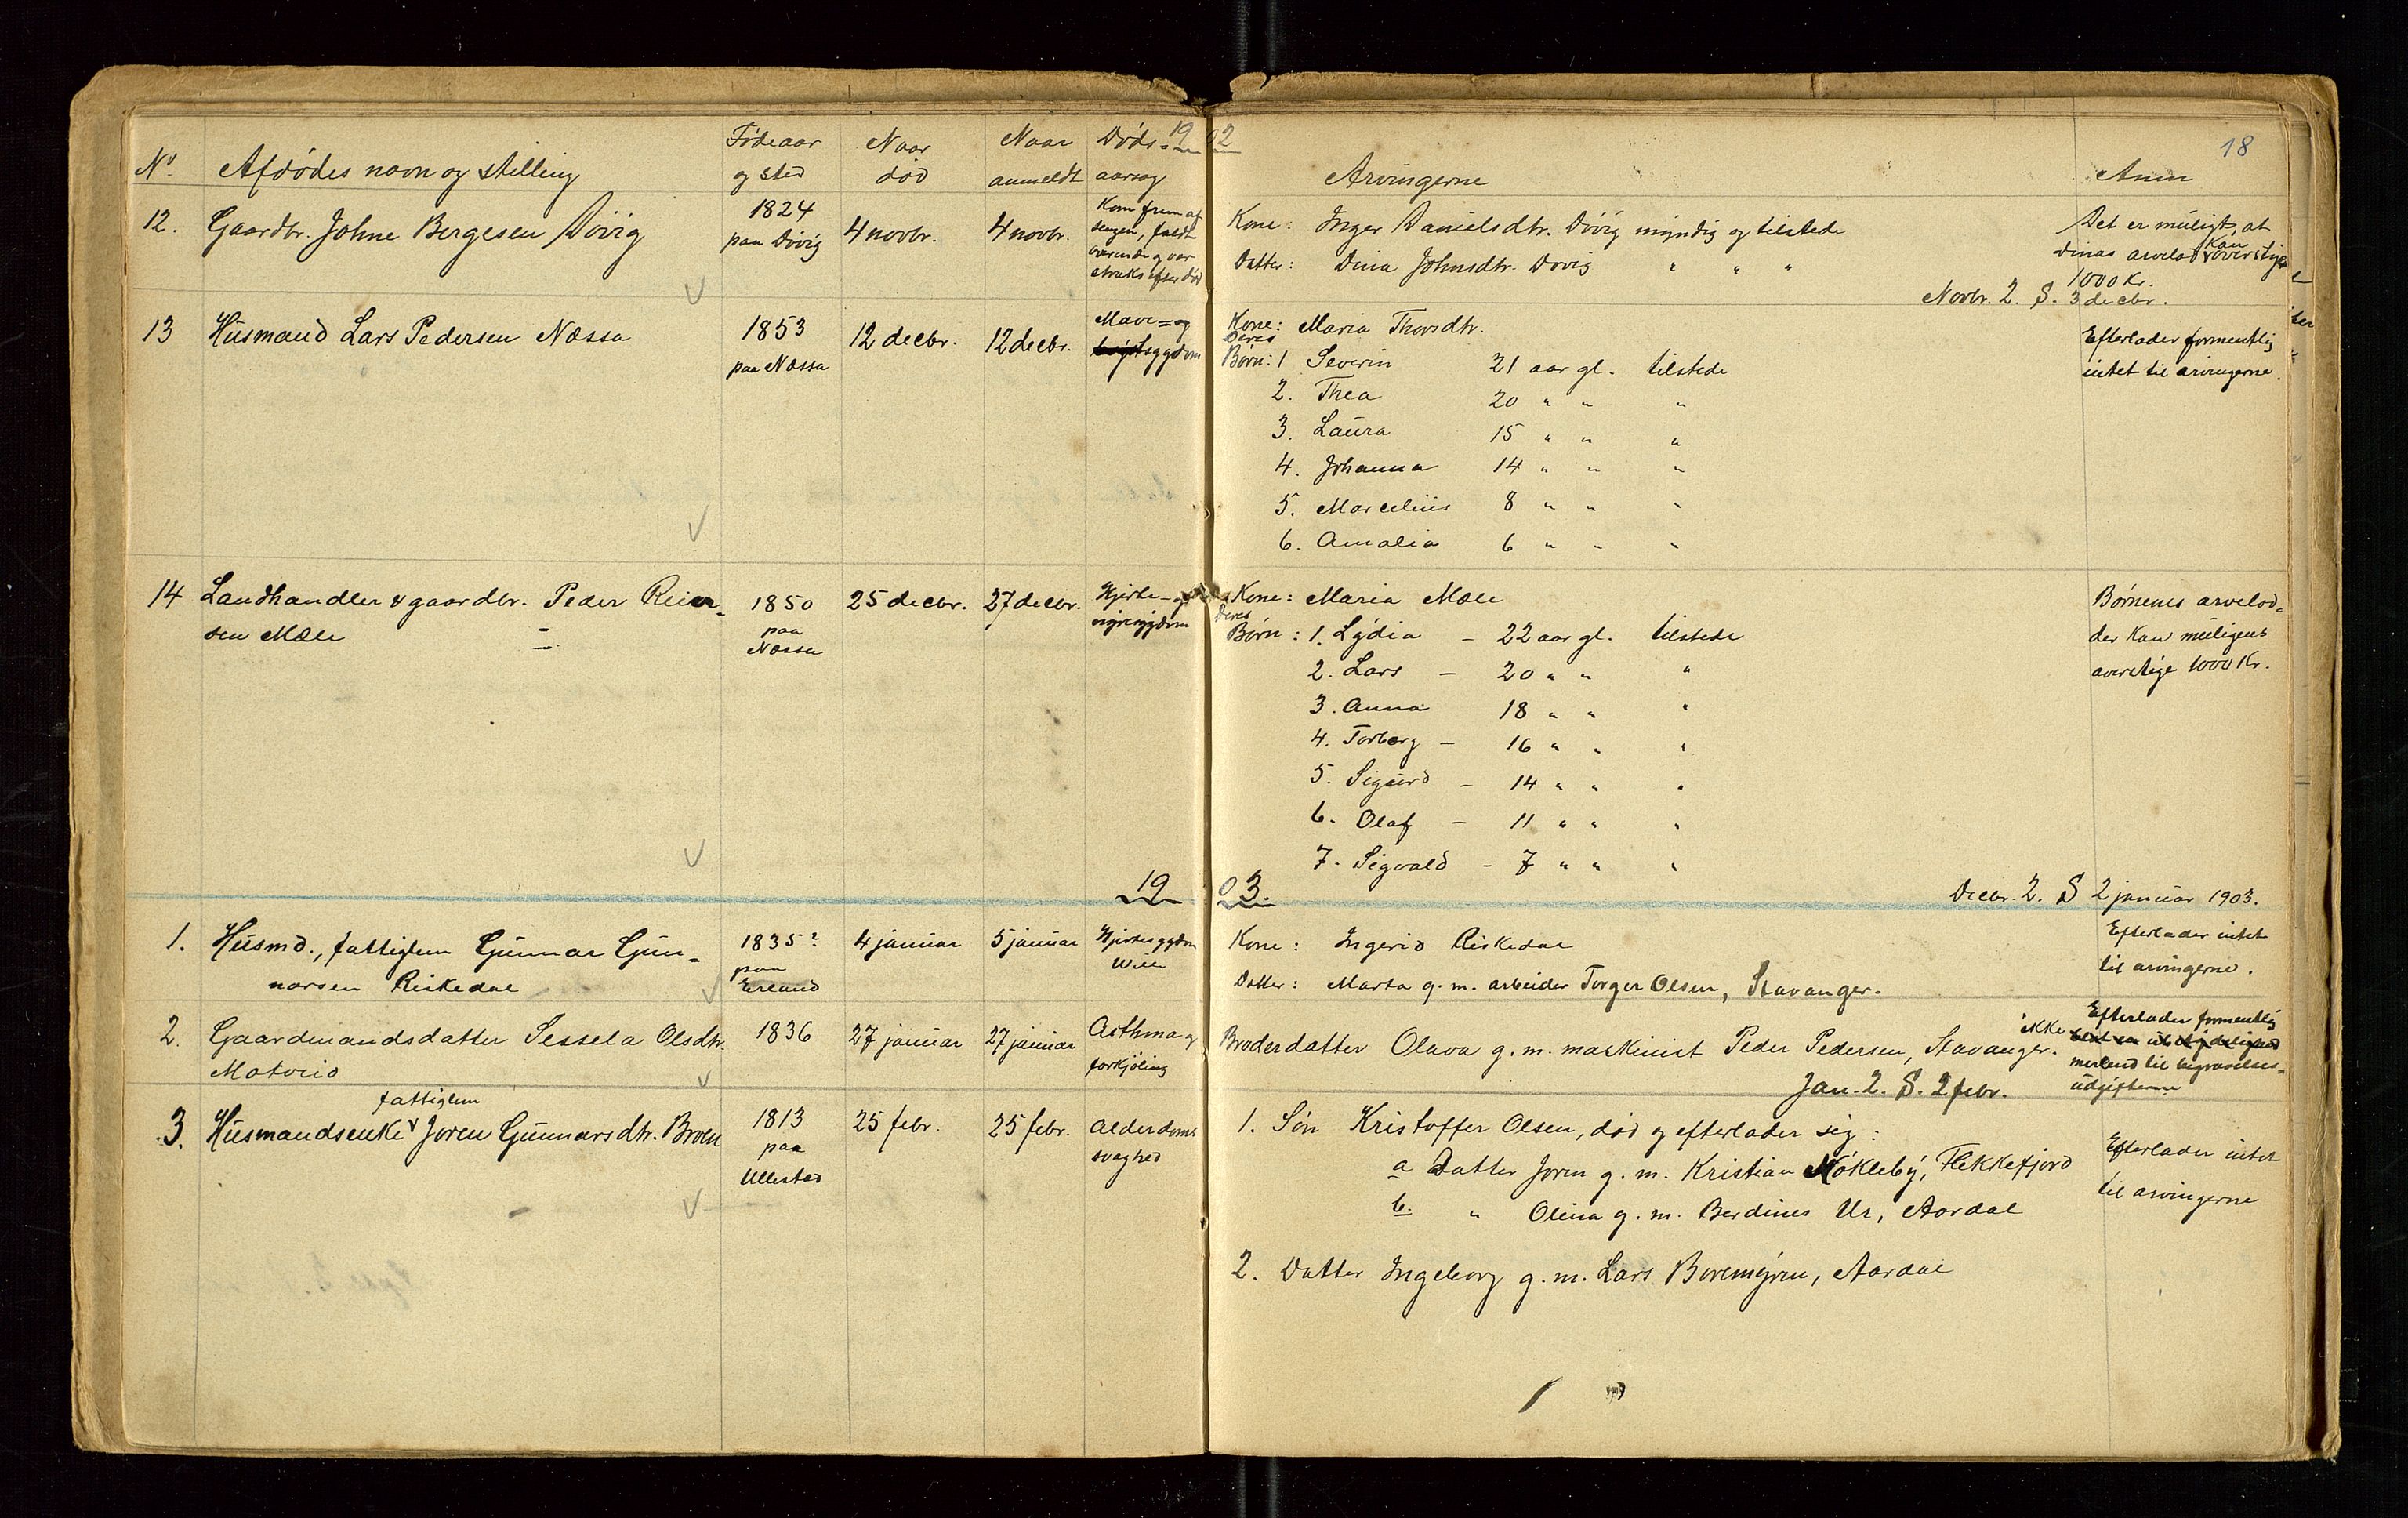 19 02
18
No. Afdødes navn og stilling Fødeaar og sted Naar død Naar anmeldt Dødsaarsag Arvingerne Anm
12. Gaardbr. Johne Bergesen Døvig
1824
paa Døvig
4 novbr.
4 novbr.
Kom frem af
sengen, faldt
overende og var
straks efter død
Kone: Inger Danielsdtr. Døvig myndig og tilstede
Datter: Dina Johnsdtr. Døvig " " "
Det er muligt, at
Dinas arvelod kan overstige
1000 Kr.
Novbr. 2. S. 3 decbr.
13 Husmand Lars Pedersen Næssa
1853
paa Næssa
12 decbr.
12 decbr.
Mave= og
sygdom
Kone: Maria Thorsdtr.
Deres
Børn: 1 Severin 21 aar gl. tilstede
2. Thea 20 " " "
3. Laura 15 " " "
4. Johanna 14 " " "
5. Marcelius 8 " " "
6. Amalia 6 " " "
Efterlader formentlig
intet til arvingerne.
14 Landhandler & gaardbr. Peder Reier-
sen Mæle
1850
paa
Næssa
25 decbr.
27 decbr.
Hjerte- og
nyresygdom
Kone: Maria Mæle
Deres
Børn: 1. Lydia - 22 aar gl. tilstede
2. Lars - 20 " " "
3. Anna 18 " " "
4. Torborg - 16 " " "
5. Sigurd - 14 " " "
6. Olaf - 11 " " "
7. Sigvald - 7 " " "
Børnenes arvelod=
der kan muligens
overstige 1000 Kr.
19 03.
Decbr. 2. S 2 januar 1903.
1. Husmd., fattiglem Gunnar Gun-
narsen Riskedal
1835?
paa
Erland
4 januar
5 januar
Hjertesygdom
Kone: Ingerid Riskedal
Datter: Marta g. m. arbeider Torger Olsen, Stavanger.
Efterlader intet
til arvingerne.
2. Gaardmandsdatter Sessela Olsdtr.
Motveid
1836
27 januar
27 januar
Asthma og
forkjøling
Broderdatter Olava g. m. maskinist Peder Pedersen, Stavanger.
Efterlader formentlig
ikke
mer end til begravelses=
udgifterne
Jan. 2. S. 2 febr.
3. Husmandsenke & fattiglem Joren Gunnarsdtr. Broen
1813
paa
Ullestad
25 febr.
25 febr.
Alderdoms
svaghed
1. Søn Kristoffer Olsen, død og efterlader sig:
a Datter Joren g. m. Kristian Nøkleby, Flekkefjord
b. " Olina g. m. Berdines Ur, Aardal
2. Datter Ingeborg g. m. Lars Boremyren, Aardal
Efterlader intet
til arvingerne